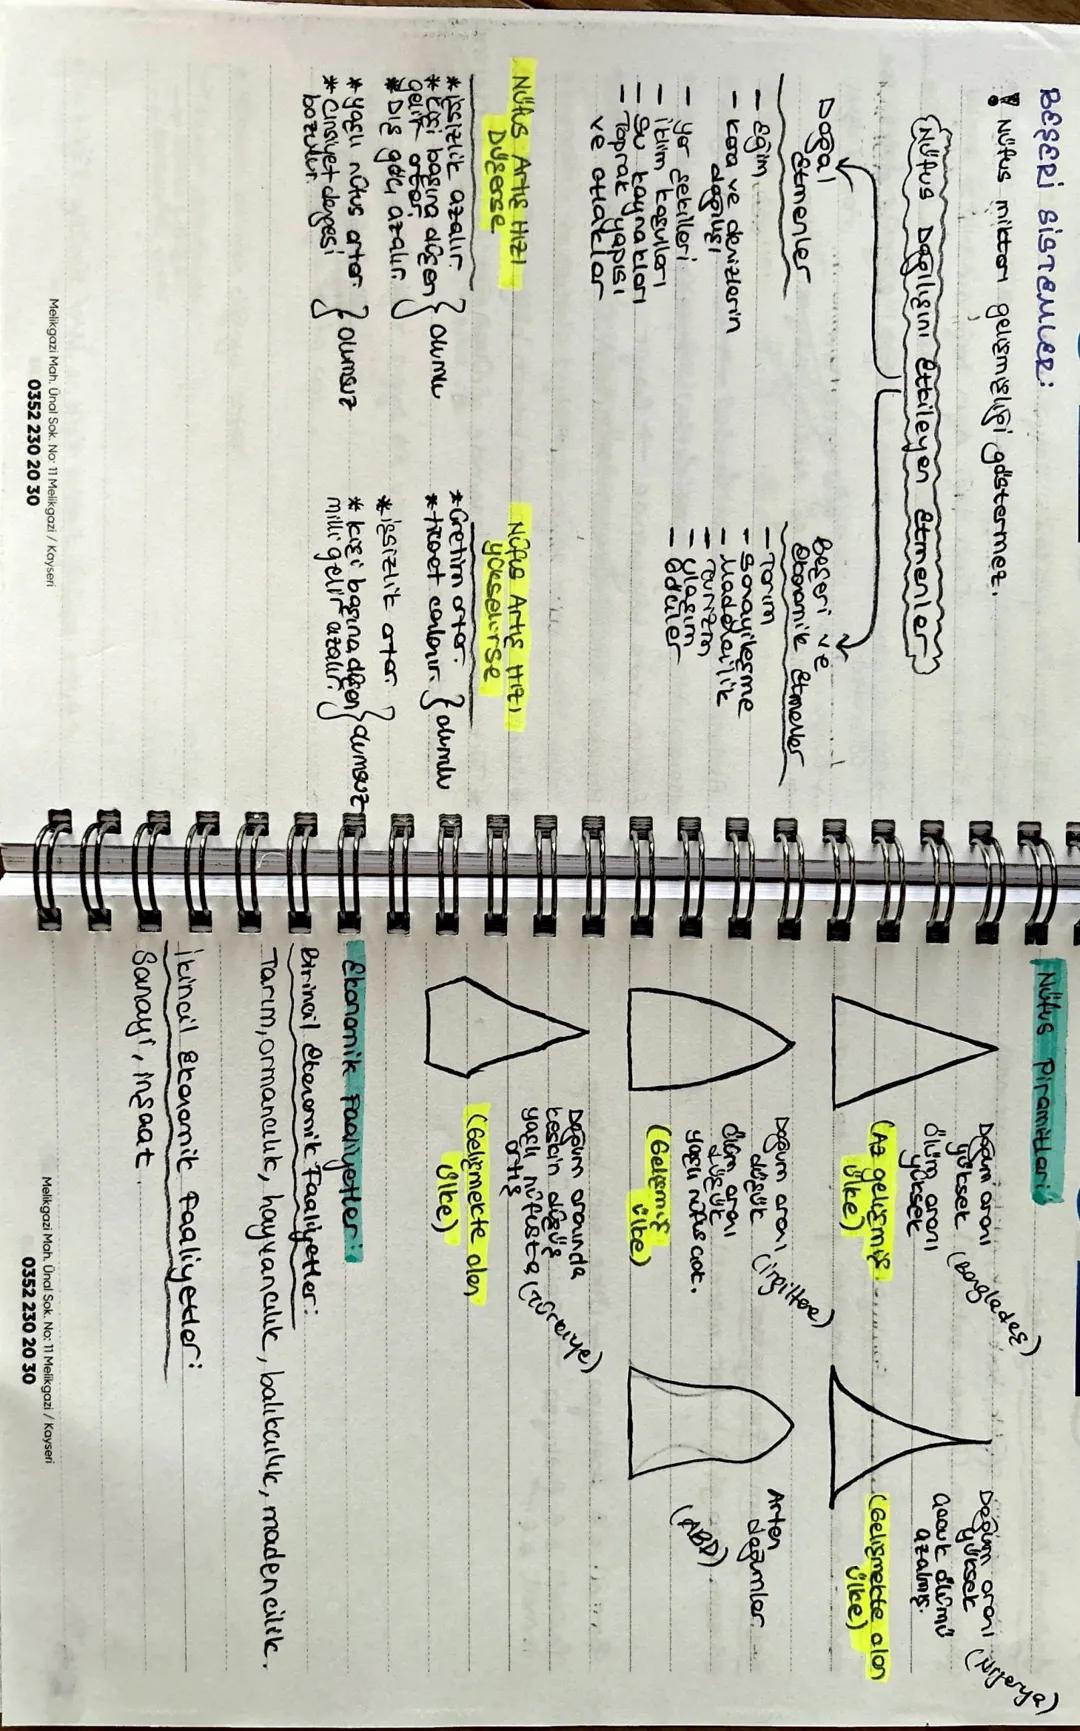 BEŞERİ SİSTEMLER:
! Nüfus miktarı gelişmişliği göstermez.
Nüfus Dağılışını Etkileyen Etmenler
Doğal
Etmenler
- Eğim
- Kara ve denizlerin
dağılışı
- yer şekilleri
- iklim koşulları
- su kaynakları
- Toprak yapısı
ve otlaklar
Beşeri ve
Ekonomik Etmenler
- Tarım
- sanayileşme
- Madencilik
- Turizm
- ulaşım
- Göçler
Nüfus Artış Hızı
Düşerse
* işsizlik azalır.
* Kişi başına düşen
gelir artar.
* Dış göç azalır.
} olumlu
* yaşlı nüfus artar.
* Cinsiyet dengesi
bozulur.
} olumsuz
Nüfus Artış Hızı
yükselirse
* Üretim artar.
* ticaret canlanır.
} olumlu
* işsizlik artar.
* kişi başına düşen
milli gelir azalır.
} olumsuz
Melikgazi Mah. Ünal Sok. No: 11 Melikgazi / Kayseri
0352 230 20 30
Nüfus Piramitleri
Doğum oranı
yüksek (Bangladeş)
ölüm oranı
yüksek
(Az gelişmiş
ülke)
Doğum oranı
yüksek (Nijerya)
çocuk ölümü
azalmış.
(Gelişmekte olan
ülke)
Doğum oranı
düşük (ingiltere)
ölüm oranı
düşük
yaşlı nüfus çok.
(Gelişmiş
ülke)
Artan
doğumlar
(ABD)
Doğum oranında
keskin düşüş
yaşlı nüfusta (Türkiye)
artış
(Gelişmekte olan
ülke)
Ekonomik Faaliyetler:
Birincil Ekonomik Faaliyetler:
Tarım, ormancılık, hayvancılık, balıkçılık, madencilik.
İkincil Ekonomik Faaliyetler:
Sanayi, inşaat.
Melikgazi Mah. Ünal Sok. No: 11 Melikgazi / Kayseri
0352 230 20 30